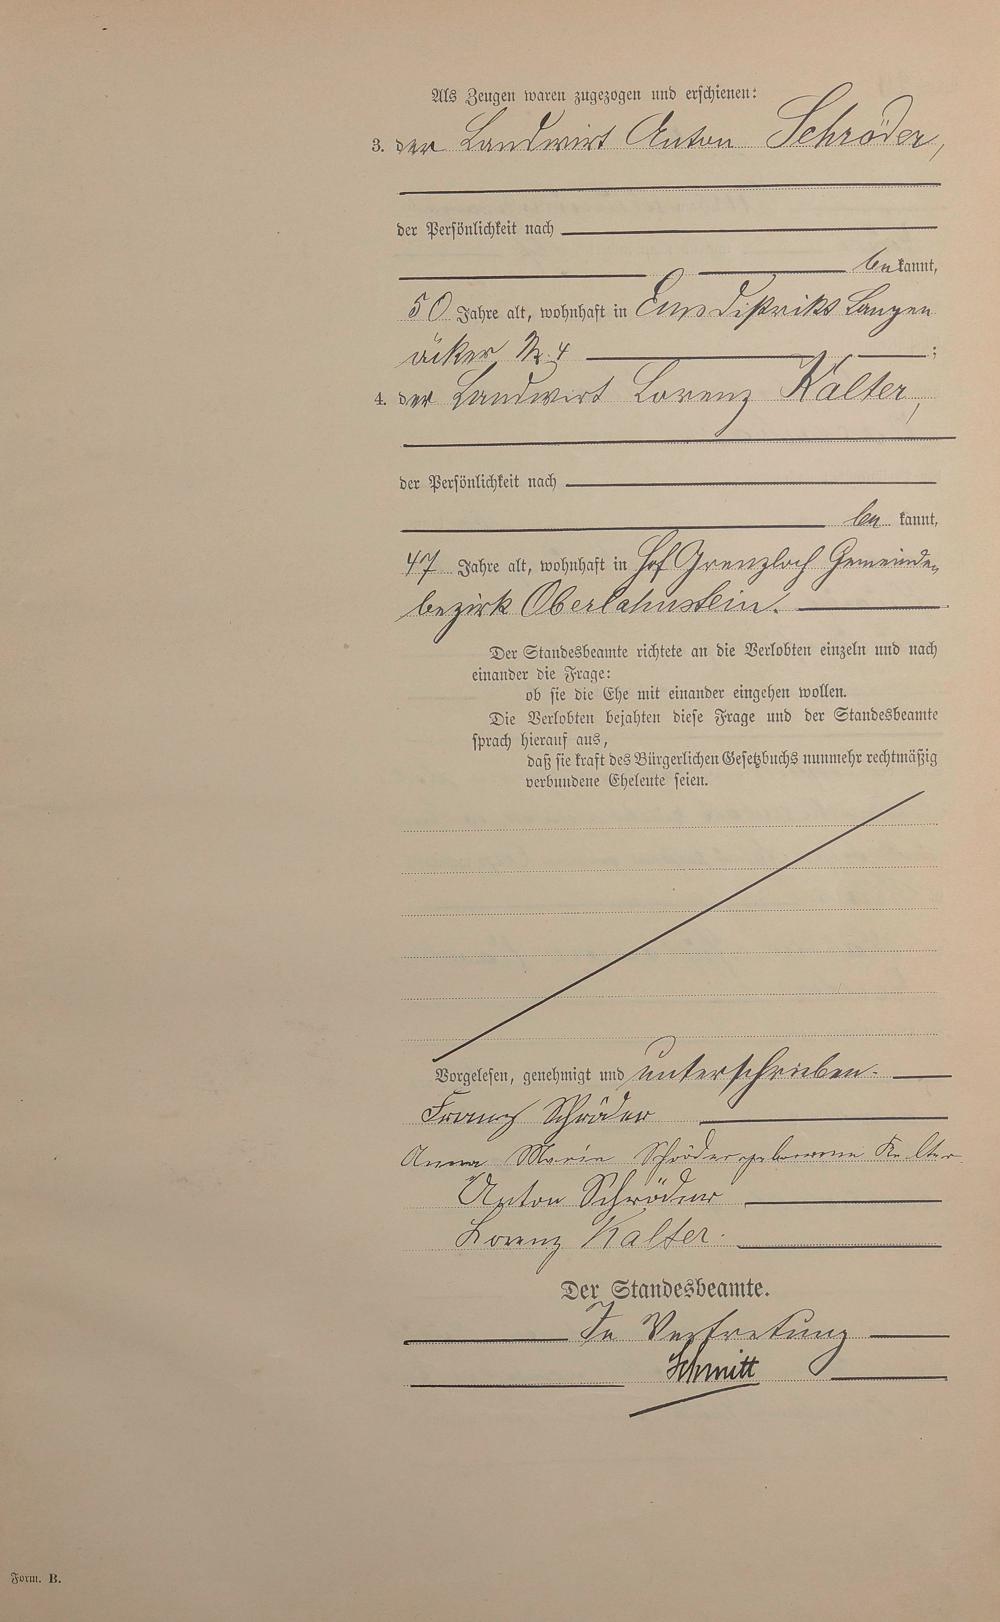 Als Zeugen waren zugezogen und erschienen:
3. der Landwirt Anton Schröder,
der Persönlichkeit nach
bekannt,
50 Jahre alt, wohnhaft in Ems Distrikt Langen
äcker Nr. 4 ;
4. der Landwirt Lorenz Kalter,
der Persönlichkeit nach
be kannt,
47 Jahre alt, wohnhaft in Hof Grenzloch Gemeinde-
bezirk Oberlahnstein.
Der Standesbeamte richtete an die Verlobten einzeln und nach
einander die Frage:
ob sie die Ehe mit einander eingehen wollen.
Die Verlobten bejahten diese Frage und der Standesbeamte
sprach hierauf aus,
daß sie kraft des Bürgerlichen Gesetzbuchs nunmehr rechtmäßig
verbundene Eheleute seien.
Vorgelesen, genehmigt und unterschrieben.
Franz Schröder
Anna Maria Schröder geborene Kalter
Anton Schröder
Lorenz Kalter.
Der Standesbeamte.
In Vertretung
Schmitt
Form. B.